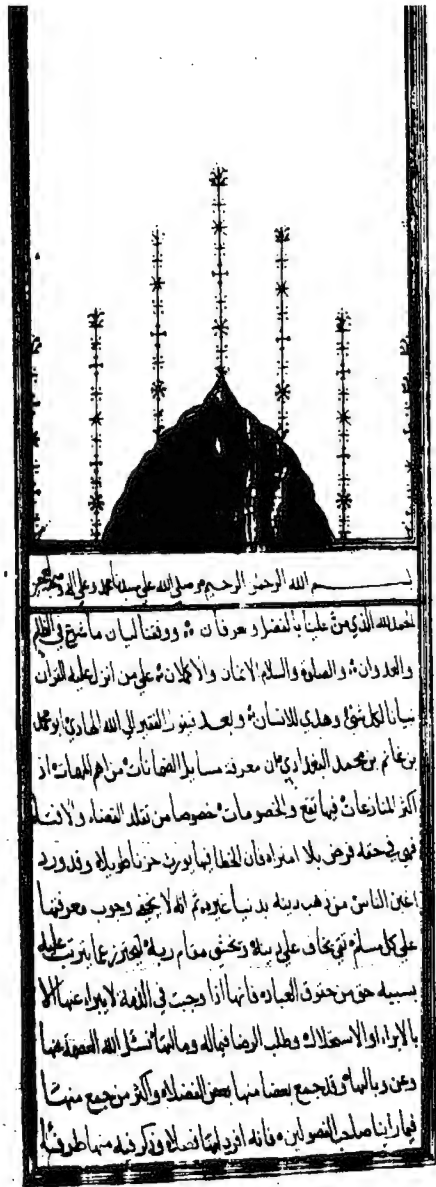 بسم الله الرحمن الرحيم وصلى الله على سيدنا محمد وعلى اله وصحبه
الحمد لله الذي من علينا بالفضل والعرفان ووفقنا لبيان ما شرع في الظلم
والعدوان والصلوة والسلام الاتمان والاكملان على من انزل عليه القرآن
تبيانا لكل شئ وهدى للانسان وبعد فيقول الفقير الى الله الهادي ابو محمد
بن غانم بن محمد البغدادي ان معرفة مسايل الضمانات من اهم المهمات اذ
اكثر المنازعات فيها تقع والخصومات خصوصا من تقلد القضاء والافتاء
فهي في حقه فرض بلا امتراء فان الخطا فيها يورث حزنا طويلا وقد ورد
اغبن الناس من ذهب دينه بدنيا غيره ثم انه لا يخفى وجوب معرفتها
على كل مسلم تقي يخاف على دينه ويخشى مقام ربه ليحترز عما يترتب عليه
بسببه حق من حقوق العباد فانها اذا وجبت في الذمة لا يبراء عنها الا
بالابراء او الاستحلال وطلب الرضا فيما له ومالها نسئل الله العصمة عنها
وعن وبالها وقد جمع بعضا منها بعض الفضلاء واكثر من جمع منها
فيما راينا صاحب الفصولين فانه افرد لها فصلا وذكر فيه منها طرفا